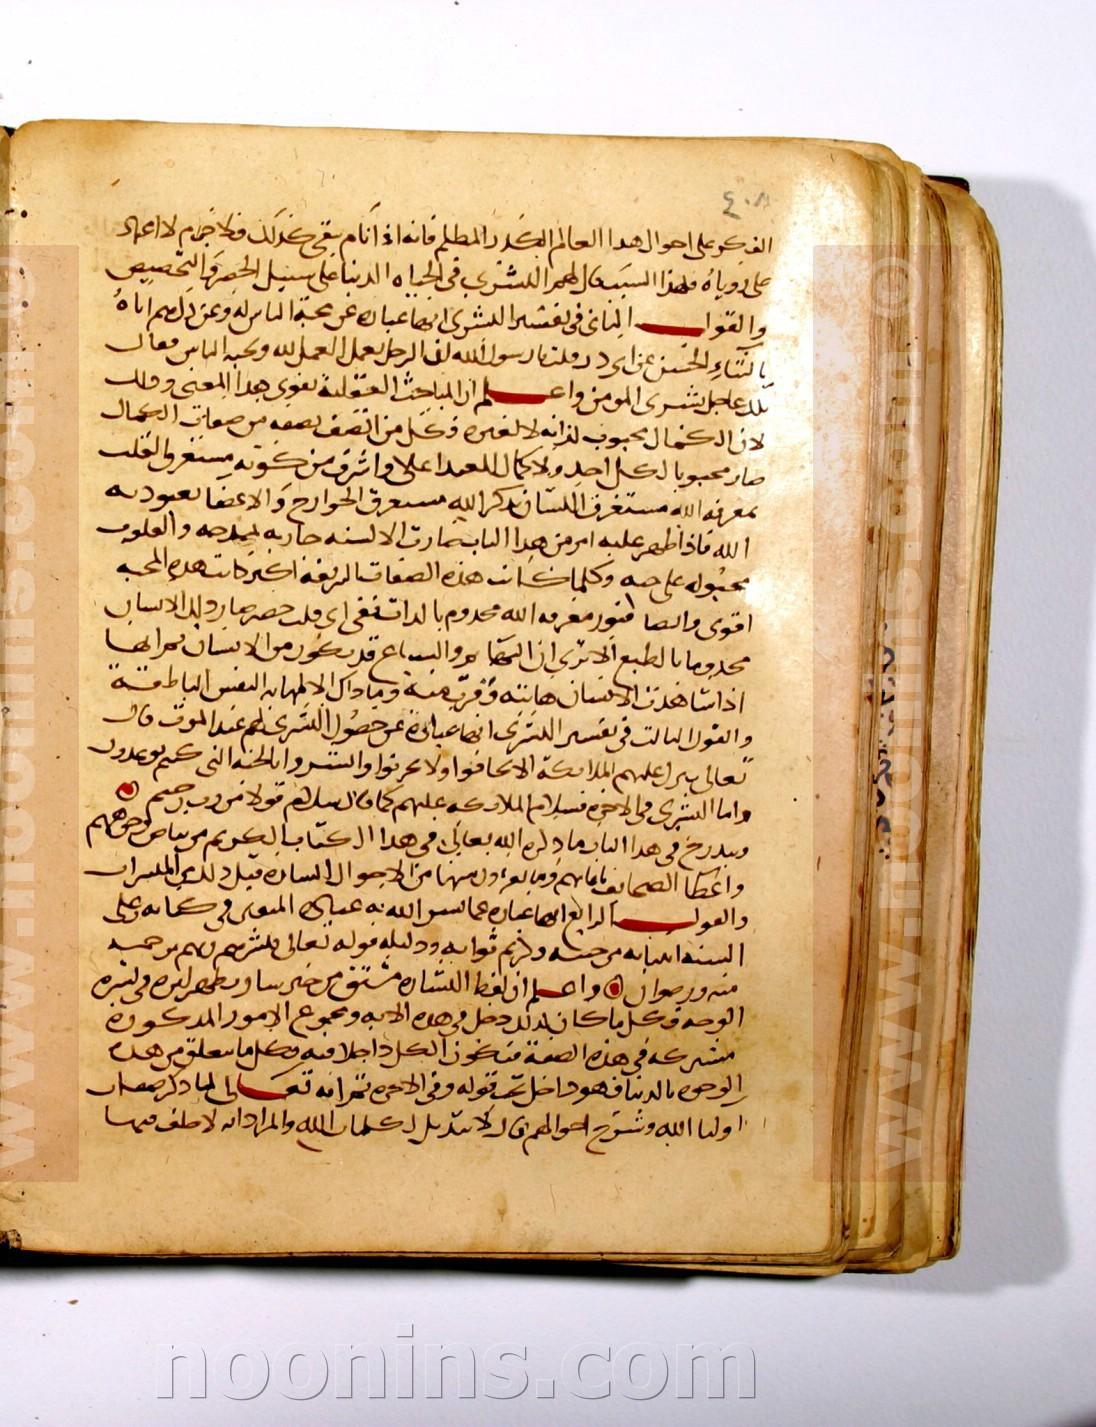 ٤٠٨
الفكر على احوال هذا العالم الكدر المظلم فانه اذا نام يبقى كذلك فلا جرم لا اعتماد
على روياه فلهذا السبب قال لهم البشرى في الحياه الدنيا على سبيل الحصر والتخصيص
والقول الثاني في تفسير البشرى انها عباره عن محبة الناس له وعن ذكرهم اياه
بالثناء الحسن عن ابي ذر قلت يا رسول الله ان الرجل يعمل العمل لله ويحبه الناس فقال
تلك عاجل بشرى المومن واعلم ان المباحث العقلية تقوى هذا المعنى وذلك
لان الكمال محبوب لذاته لا لغيره وكل من اتصف بصفه من صفات الكمال
صار محبوبا لكل احد ولا كمال للعبد اعلى واشرف من كونه مستغرق القلب
بمعرفه الله مستغرق اللسان بذكر الله مستغرق الجوارح والاعضا بعبوديه
الله فاذا ظهر عليه امر من هذا الباب صارت الالسنه جاريه بمدحه والقلوب
مجبوله على حبه وكلما كانت هذه الصفات الشريفة اكثر كانت هذه المحبه
اقوى وايضا فنور معرفه الله مخدوم بالذات ففي اي قلب حضر صار ذلك الانسان
مخدوما بالطبع الا ترى ان البهايم والسباع قد يكون من الانسان ثم انها
اذا شاهدت الانسان هابته وفرت منه وما ذاك الا لمهابه النفس الناطقة
والقول الثالث في تفسير البشرى انها عبارة عن حصول البشرى لهم عند الموت قال
تعالى تتنزل عليهم الملائكة الا تخافوا ولا تحزنوا وابشروا بالجنة التي كنتم توعدون
واما البشرى في الاخره فسلام الملائكه عليهم كما قال سلام قولا من رب رحيم
ويندرج في هذا الباب ما ذكره الله تعالى في هذا الكتاب الكريم من بياض وجوههم
واعطا الصحايف بايمانهم وما يقرءون منها من الاحوال الساره فكل ذلك من المبشرات
والقول الرابع انها عباره عما بشر الله به عباده المتقين في كتابه وعلى
السنه انبيايه من جنته وكريم ثوابه ودليله قوله تعالى يبشرهم ربهم برحمه
منه ورضوان واعلم ان لفظ البشاره مشتق من خبر سار يظهر اثره في بشره
الوجه فكل ما كان كذلك دخل في هذه الايه ومجموع الامور المذكورة
مشتركه في هذه الصفة فيكون الكل داخلا فيه وكل ما يتعلق من هذه
الوجوه بالدنيا فهو داخل تحت قوله وفي الاخره ثم انه تعالى لما ذكر صفات
اوليا الله وشرح احوالهم قال لا تبديل لكلمات الله والمراد انه لا خلف فيها
noonins.com